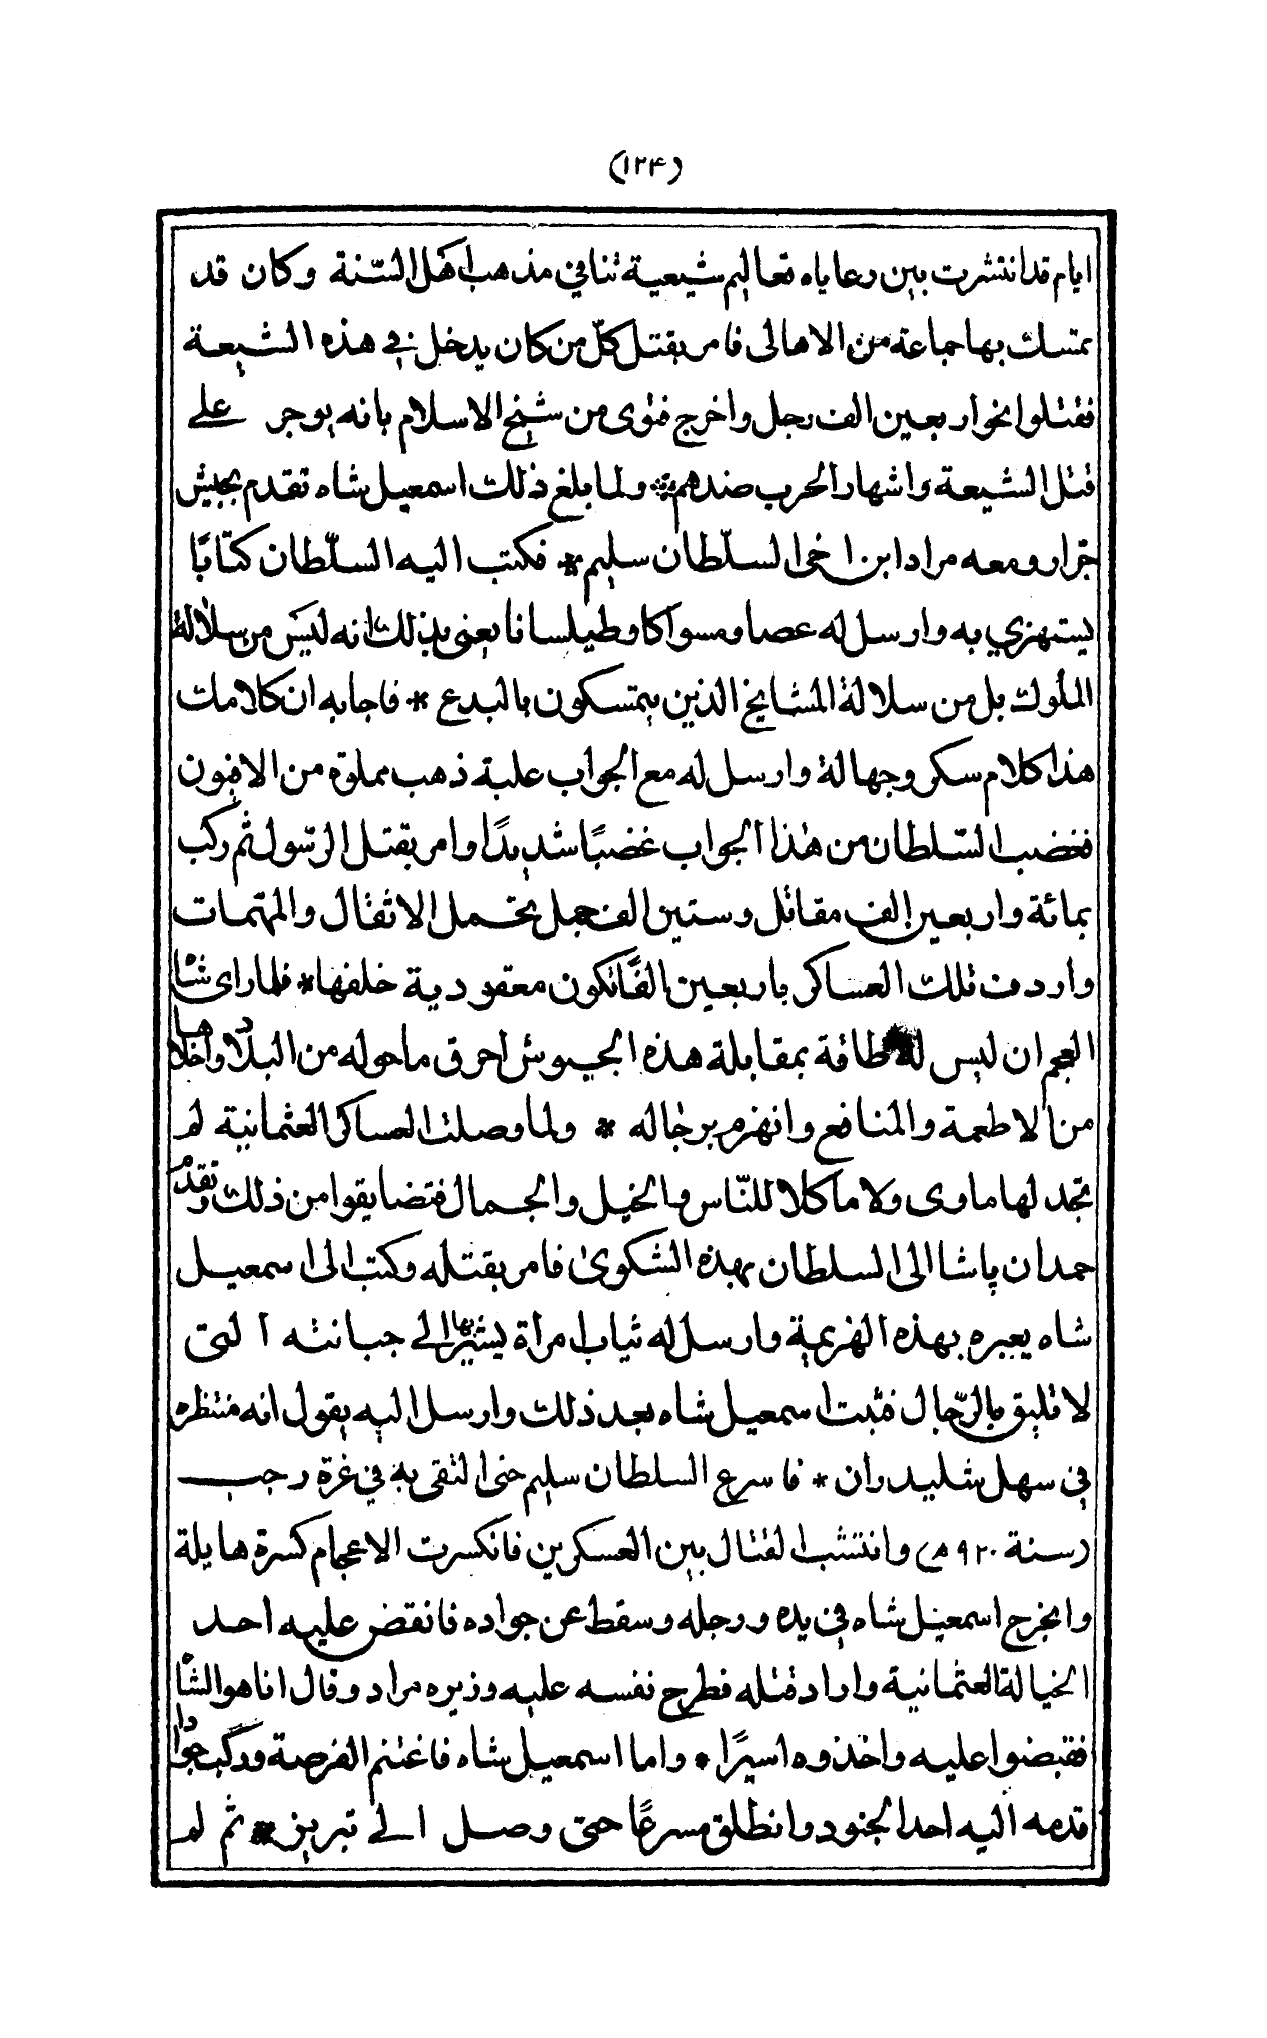 (١٢۴)
ايام قد انتشرت بين رعاياه تعاليم شيعية تنافي مذهب اهل السّنة وكان قد
تمسك بها جماعة من الاهالى فامر بقتل كلّ من كان يدخل في هذه الشيعة
فقتلوا نحو اربعين الف رجل واخرج فتوى من شيخ الاسلام بانه يوجر علے
قتل الشيعة واشهار الحرب ضدهم * ولما بلغ ذلك اسمعيل شاه تقدم بجيش
جرّار ومعه مراد ابن اخى السلّطان سليم * فكتب اليه السلّطان كتابًا
يستهزي به وارسل له عصا ومسواكا وطيلسانا يعنى بذلك انه ليس من سلالة
الملوك بل من سلالة المشايخ الذين يتمسكون بالبدع * فاجابه ان كلامك
هذا كلام سكر وجهالة وارسل له مع الجواب علبة ذهب مملوة من الافيون
فغضب السّلطان من هذا الجواب غضبًا شديدًا وامر بقتل الرّسول ثم ركب
بمائة واربعين الف مقاتل وستين الف جمل تحمل الاثقال والمهّمات
واردف تلك العساكر باربعين الفًا تكون معقودية خلفها * فلما راى شاه
العجم ان ليس له طاقة بمقابلة هذه الجيوش احرق ما حوله من البلاد واخلاها
من الاطعمة والمنافع وانهزم برجاله * ولما وصلت العساكر العثمانية لم
تجد لها ماوى ولا ماكلا للنّاس والخيل والجمال فتضايقوا من ذلك وتقدم
حمدان پاشا الى السلطان بهذه الشكوى فامر بقتله وكتب الى اسمعيل
شاه يعيره بهذه الهزيمة وارسل له ثياب امراة يشير بها الے جبانته التى
لا تليق بالرّجال فثبت اسمعيل شاه بعد ذلك وارسل اليه يقول انه منتظره
في سهل شليدران * فاسرع السلطان سليم حتى التقى به في غرة رجب
(سنة ٩٢٠ ه) وانتشب القتال بين العسكرين فانكسرت الاعجام كسرة هايلة
وانجرح اسمعيل شاه في يده ورجله وسقط عن جواده فانقض عليه احد
الخيالة العثمانية واراد قتله فطرح نفسه عليه وزيره مراد وقال انا هو الشاه
فقبضوا عليه واخذوه اسيرًا * واما اسمعيل شاه فاغتنم الفرصة وركب جوادا
قدمه اليه احد الجنود وانطلق مسرعًا حتى وصل الے تبريز * ثم لم